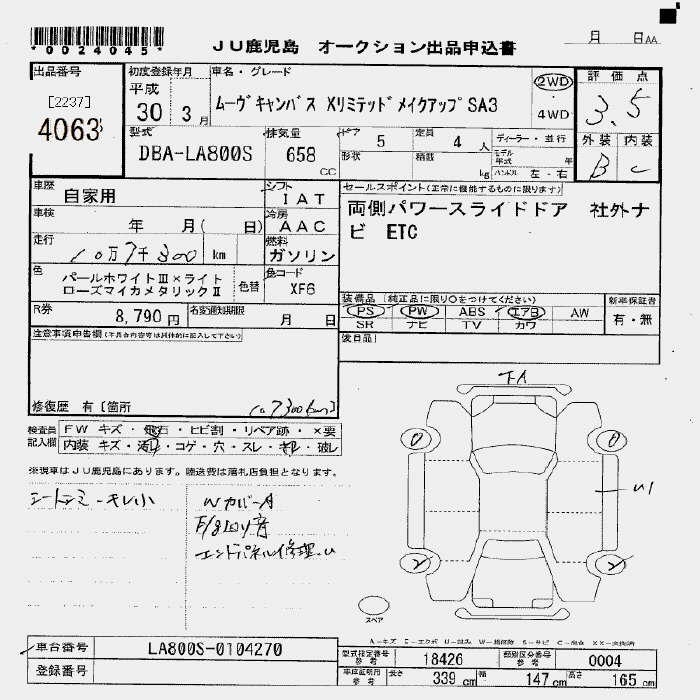 *0024045*
JU鹿児島 オークション出品申込書
月 日AA
出品番号
[2237]
4063
初度登録年月
平成
30 3月
車名・グレード
ムーヴキャンバス Xリミテッドメイクアップ SA3
2WD
・
4WD
評 価 点
3.5
外装 内装
B C
型式
DBA-LA800S
排気量
658
CC
ドア 5
形状
定員 4 人
積載 kg
ディーラー・並行
モデル年式 年
ハンドル 左・右
車歴
自家用
シフト
IAT
車検
年 月( 日)
冷房
AAC
走行
10万7千300 km
燃料
ガソリン
色
パールホワイトⅢ×ライト
ローズマイカメタリックⅡ
色替
色コード
XF6
R券
8,790 円
名変通知期限
月 日
セールスポイント(正常に機能するものに限ります)
両側パワースライドドア 社外ナ
ビ ETC
装備品 (純正品に限り○をつけてください)
PS PW ABS エアB AW
SR ナビ TV カワ
新車保証書
有・無
後日品
注意事項申告欄(不具合内容等は具体的に記入して下さい)
修復歴 有〔箇所
(107300km)
検査員
記入欄
FW キズ・飛石・ヒビ割・リペア跡・×要
内装 キズ・汚れ・コゲ・穴・スレ・キレ・破レ
※現車はJU鹿児島にあります。陸送費は落札店負担となります。
シートシミーキレ小
Wカバー
F/8回り音
エンドパネル修理
U1
スペア
車台番号
LA800S-0104270
登録番号
型式指定番号
参考
18426
類別区分番号
参考
0004
車庫証明用
参考
長さ 339 cm
幅 147 cm
高さ 165 cm